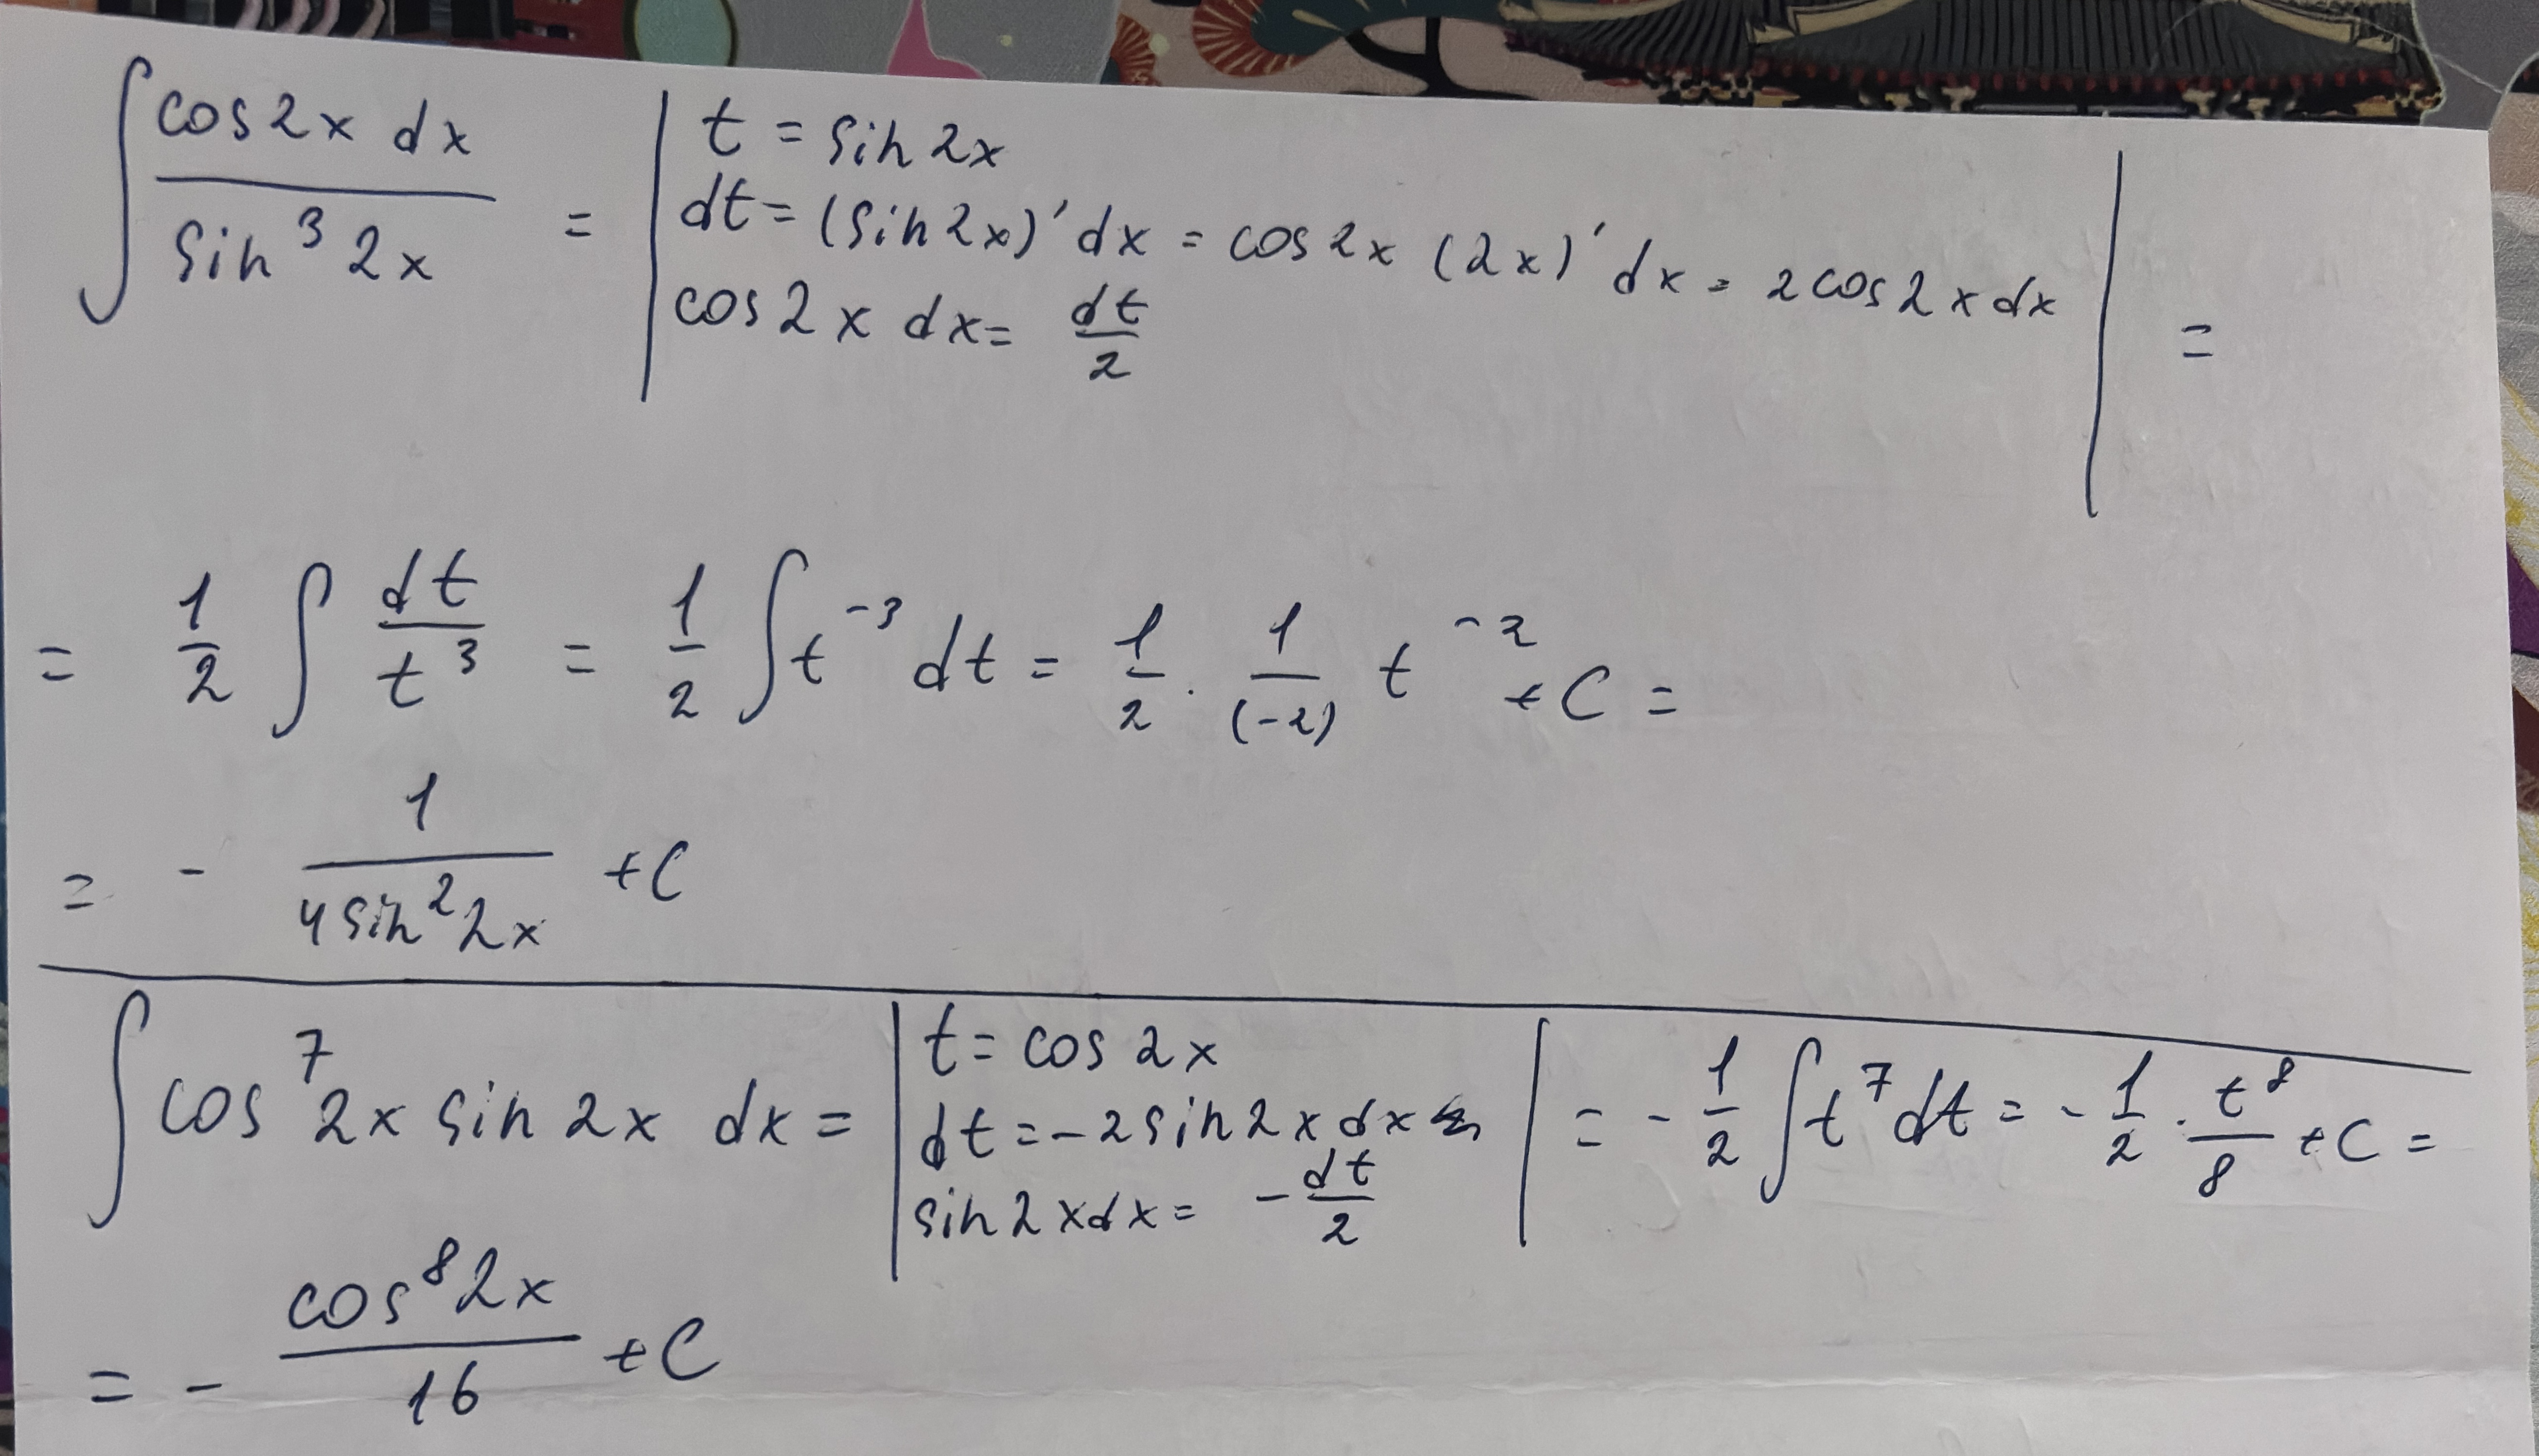 ∫ cos2x dx / sin³ 2x = | t = sin 2x
dt = (sin 2x)' dx = cos 2x (2x)' dx = 2 cos 2x dx | =
cos 2x dx = dt/2
= 1/2 ∫ dt/t³ = 1/2 ∫ t⁻³ dt = 1/2 · 1/(-2) t⁻² + C =
= - 1/(4 sin² 2x) + C
∫ cos⁷ 2x sin 2x dx = | t = cos 2x
dt = -2 sin 2x dx | = - 1/2 ∫ t⁷ dt = - 1/2 · t⁸/8 + C =
sin 2x dx = - dt/2
= - cos⁸ 2x / 16 + C